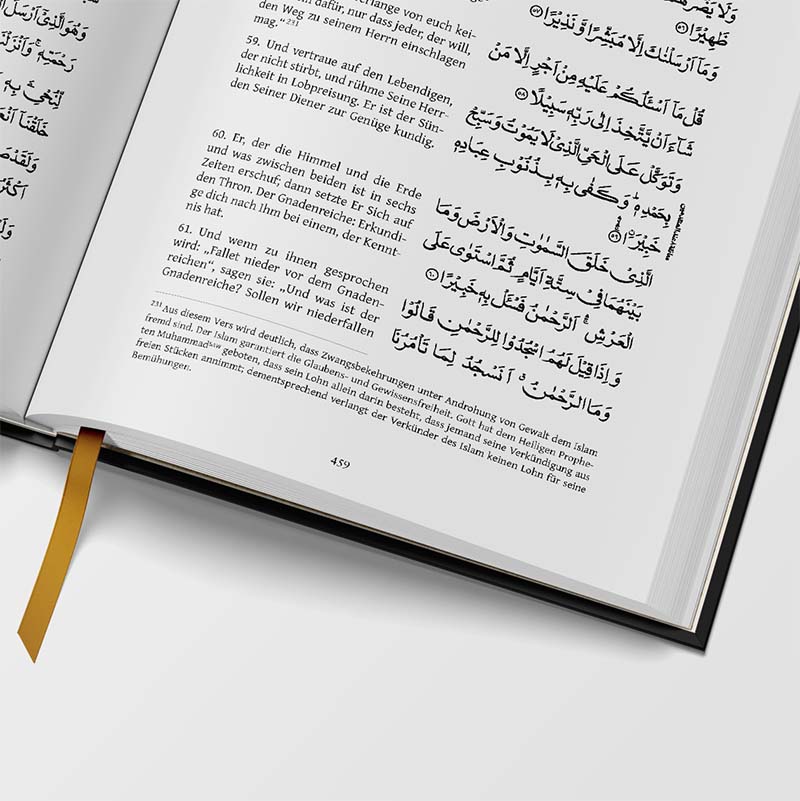 وَهُوَ الَّذِيْٓ اَرْسَلَ
رَحْمَتِهٖ ۚ وَاَنْزَلْنَا
بِهٖ
خَلَقْنَآ
erlange von euch kei-
dafür, nur dass jeder, der will,
den Weg zu seinem Herrn einschlagen
mag.“ 231
59. Und vertraue auf den Lebendigen,
der nicht stirbt, und rühme Seine Herr-
lichkeit in Lobpreisung. Er ist der Sün-
den Seiner Diener zur Genüge kundig.
60. Er, der die Himmel und die Erde
und was zwischen beiden ist in sechs
Zeiten erschuf; dann setzte Er Sich auf
den Thron. Der Gnadenreiche: Erkundi-
ge dich nach Ihm bei einem, der Kennt-
nis hat.
61. Und wenn zu ihnen gesprochen
wird: „Fallet nieder vor dem Gnaden-
reichen“, sagen sie: „Und was ist der
Gnadenreiche? Sollen wir niederfallen
ظَهِيْرًا ۵۶
وَمَآ اَرْسَلْنٰكَ اِلَّا مُبَشِّرًا وَّنَذِيْرًا ۵۷
قُلْ مَآ اَسْـَٔلُكُمْ عَلَيْهِ مِنْ اَجْرٍ اِلَّا مَنْ
شَآءَ اَنْ يَّتَّخِذَ اِلٰى رَبِّهٖ سَبِيْلًا ۵۸
وَتَوَكَّلْ عَلَى الْحَيِّ الَّذِيْ لَا يَمُوْتُ وَسَبِّحْ
بِحَمْدِهٖ ؕ وَكَفٰى بِهٖ بِذُنُوْبِ عِبَادِهٖ
خَبِيْرَا ۵۹
الَّذِيْ خَلَقَ السَّمٰوٰتِ وَالْاَرْضَ وَمَا
بَيْنَهُمَا فِيْ سِتَّةِ اَيَّامٍ ثُمَّ اسْتَوٰى عَلَى
الْعَرْشِ ۚ اَلرَّحْمٰنُ فَسْـَٔلْ بِهٖ خَبِيْرًا ۶۰
وَاِذَا قِيْلَ لَهُمُ اسْجُدُوْا لِلرَّحْمٰنِ قَالُوْا
وَمَا الرَّحْمٰنُ ۗ اَنَسْجُدُ لِمَا تَاْمُرُنَا
231 Aus diesem Vers wird deutlich, dass Zwangsbekehrungen unter Androhung von Gewalt dem Islam
fremd sind. Der Islam garantiert die Glaubens- und Gewissensfreiheit. Gott hat dem Heiligen Prophe-
ten Muhammadsaw geboten, dass sein Lohn allein darin besteht, dass jemand seine Verkündigung aus
freien Stücken annimmt; dementsprechend verlangt der Verkünder des Islam keinen Lohn für seine
Bemühungen.
459